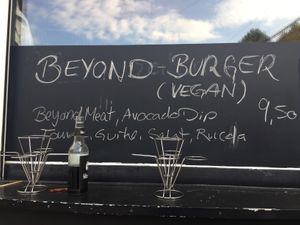 BEYOND-BURGER
(VEGAN)
Beyond Meat, Avocado Dip 9,50
Tomate, Gurke, Salat, Rucola